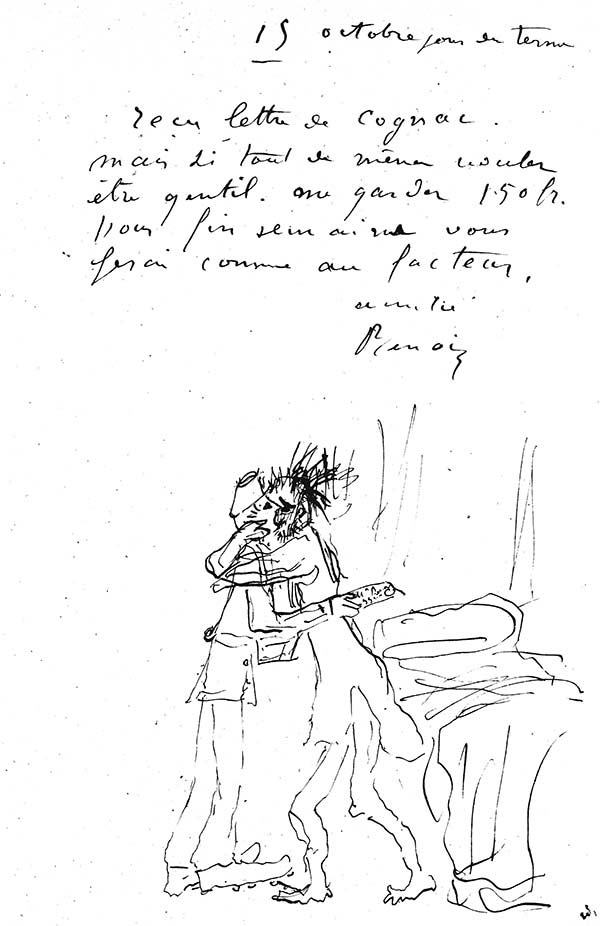 15 octobre jour du terme
reçu lettre de Cognac.
mais si tout de même voulez
être gentil. me garder 150 fr.
pour fin semaine vous
ferai comme au facteur,
amitié
Renoir